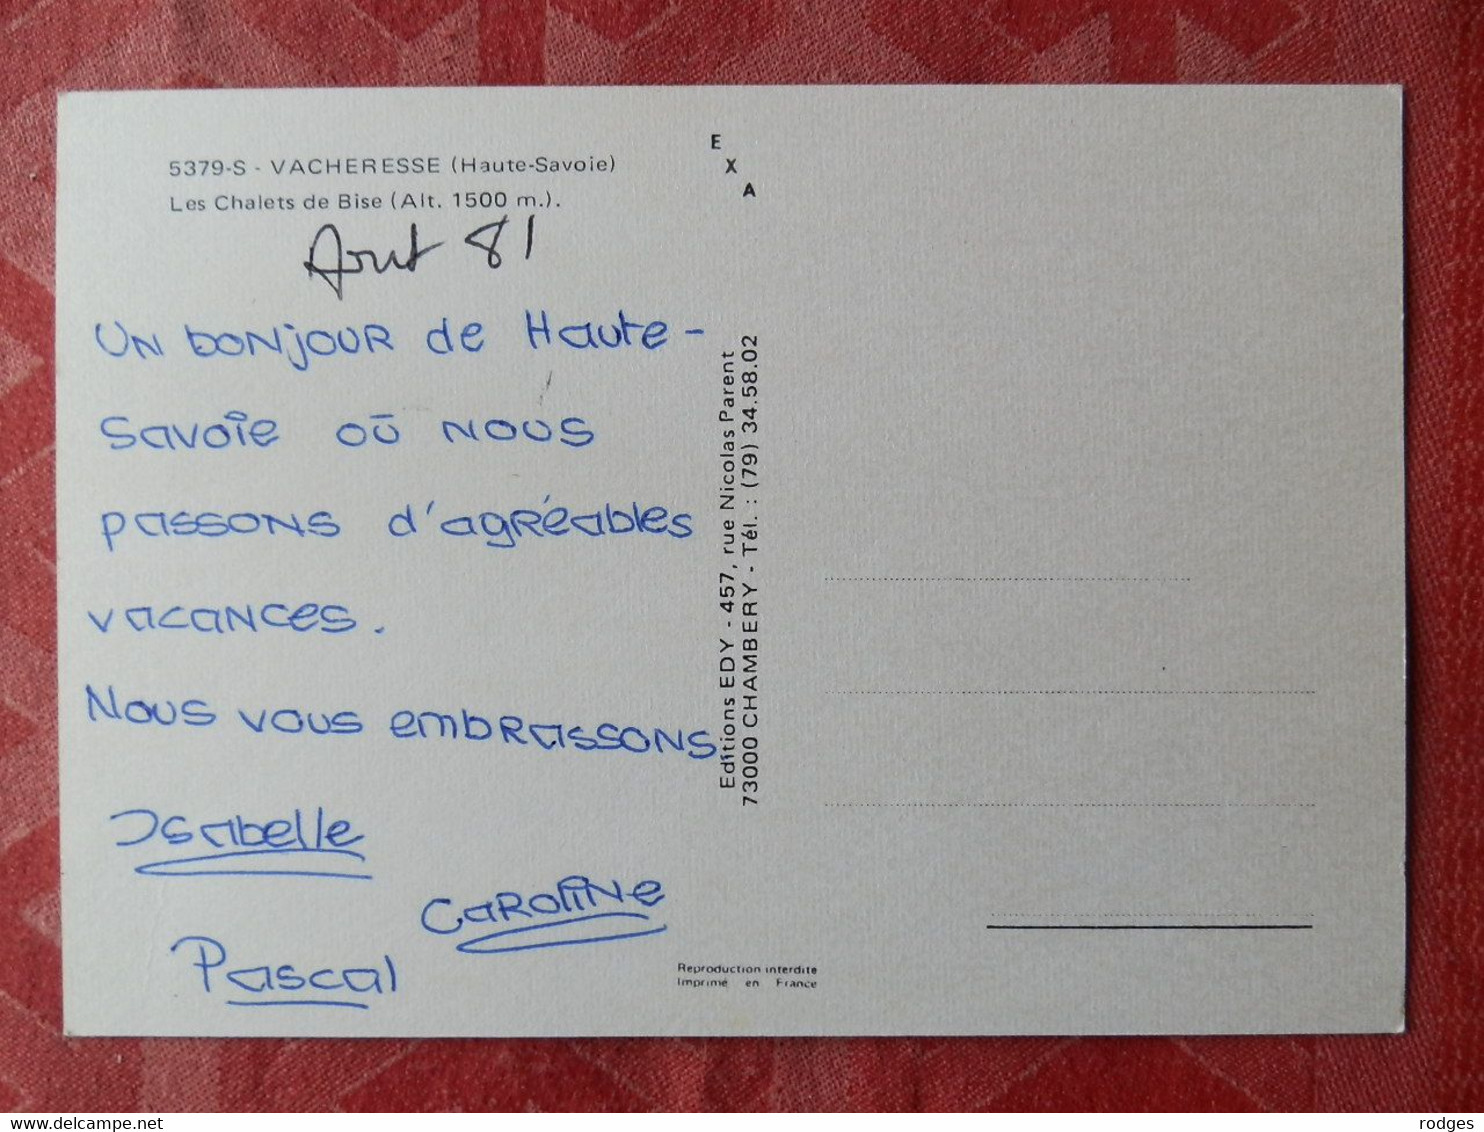 5379-S - VACHERESSE (Haute-Savoie)
Les Chalets de Bise (Alt. 1500 m.).
Aout 81
Un bonjour de Haute-
Savoie où nous
passons d'agréables
vacances.
Nous vous embrassons
Isabelle
Caroline
Pascal
E
X
A
Editions EDY - 457, rue Nicolas Parent
73000 CHAMBERY - Tél. : (79) 34.58.02
Reproduction interdite
Imprimé en France
delcampe.net
rodges